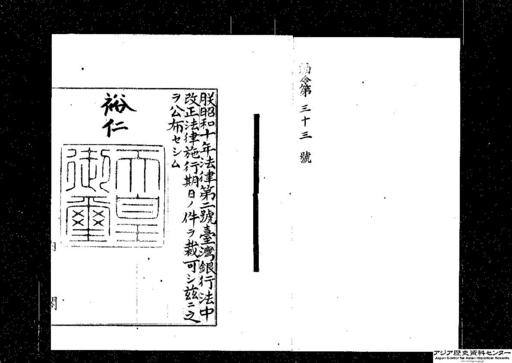 勅令第三十三號
朕昭和十年法律第二號臺灣銀行法中
改正法律施行期日ノ件ヲ裁可シ茲ニ之
ヲ公布セシム
裕仁
天皇
御璽
内閣
アジア歴史資料センター
Japan Center for Asian Historical Records